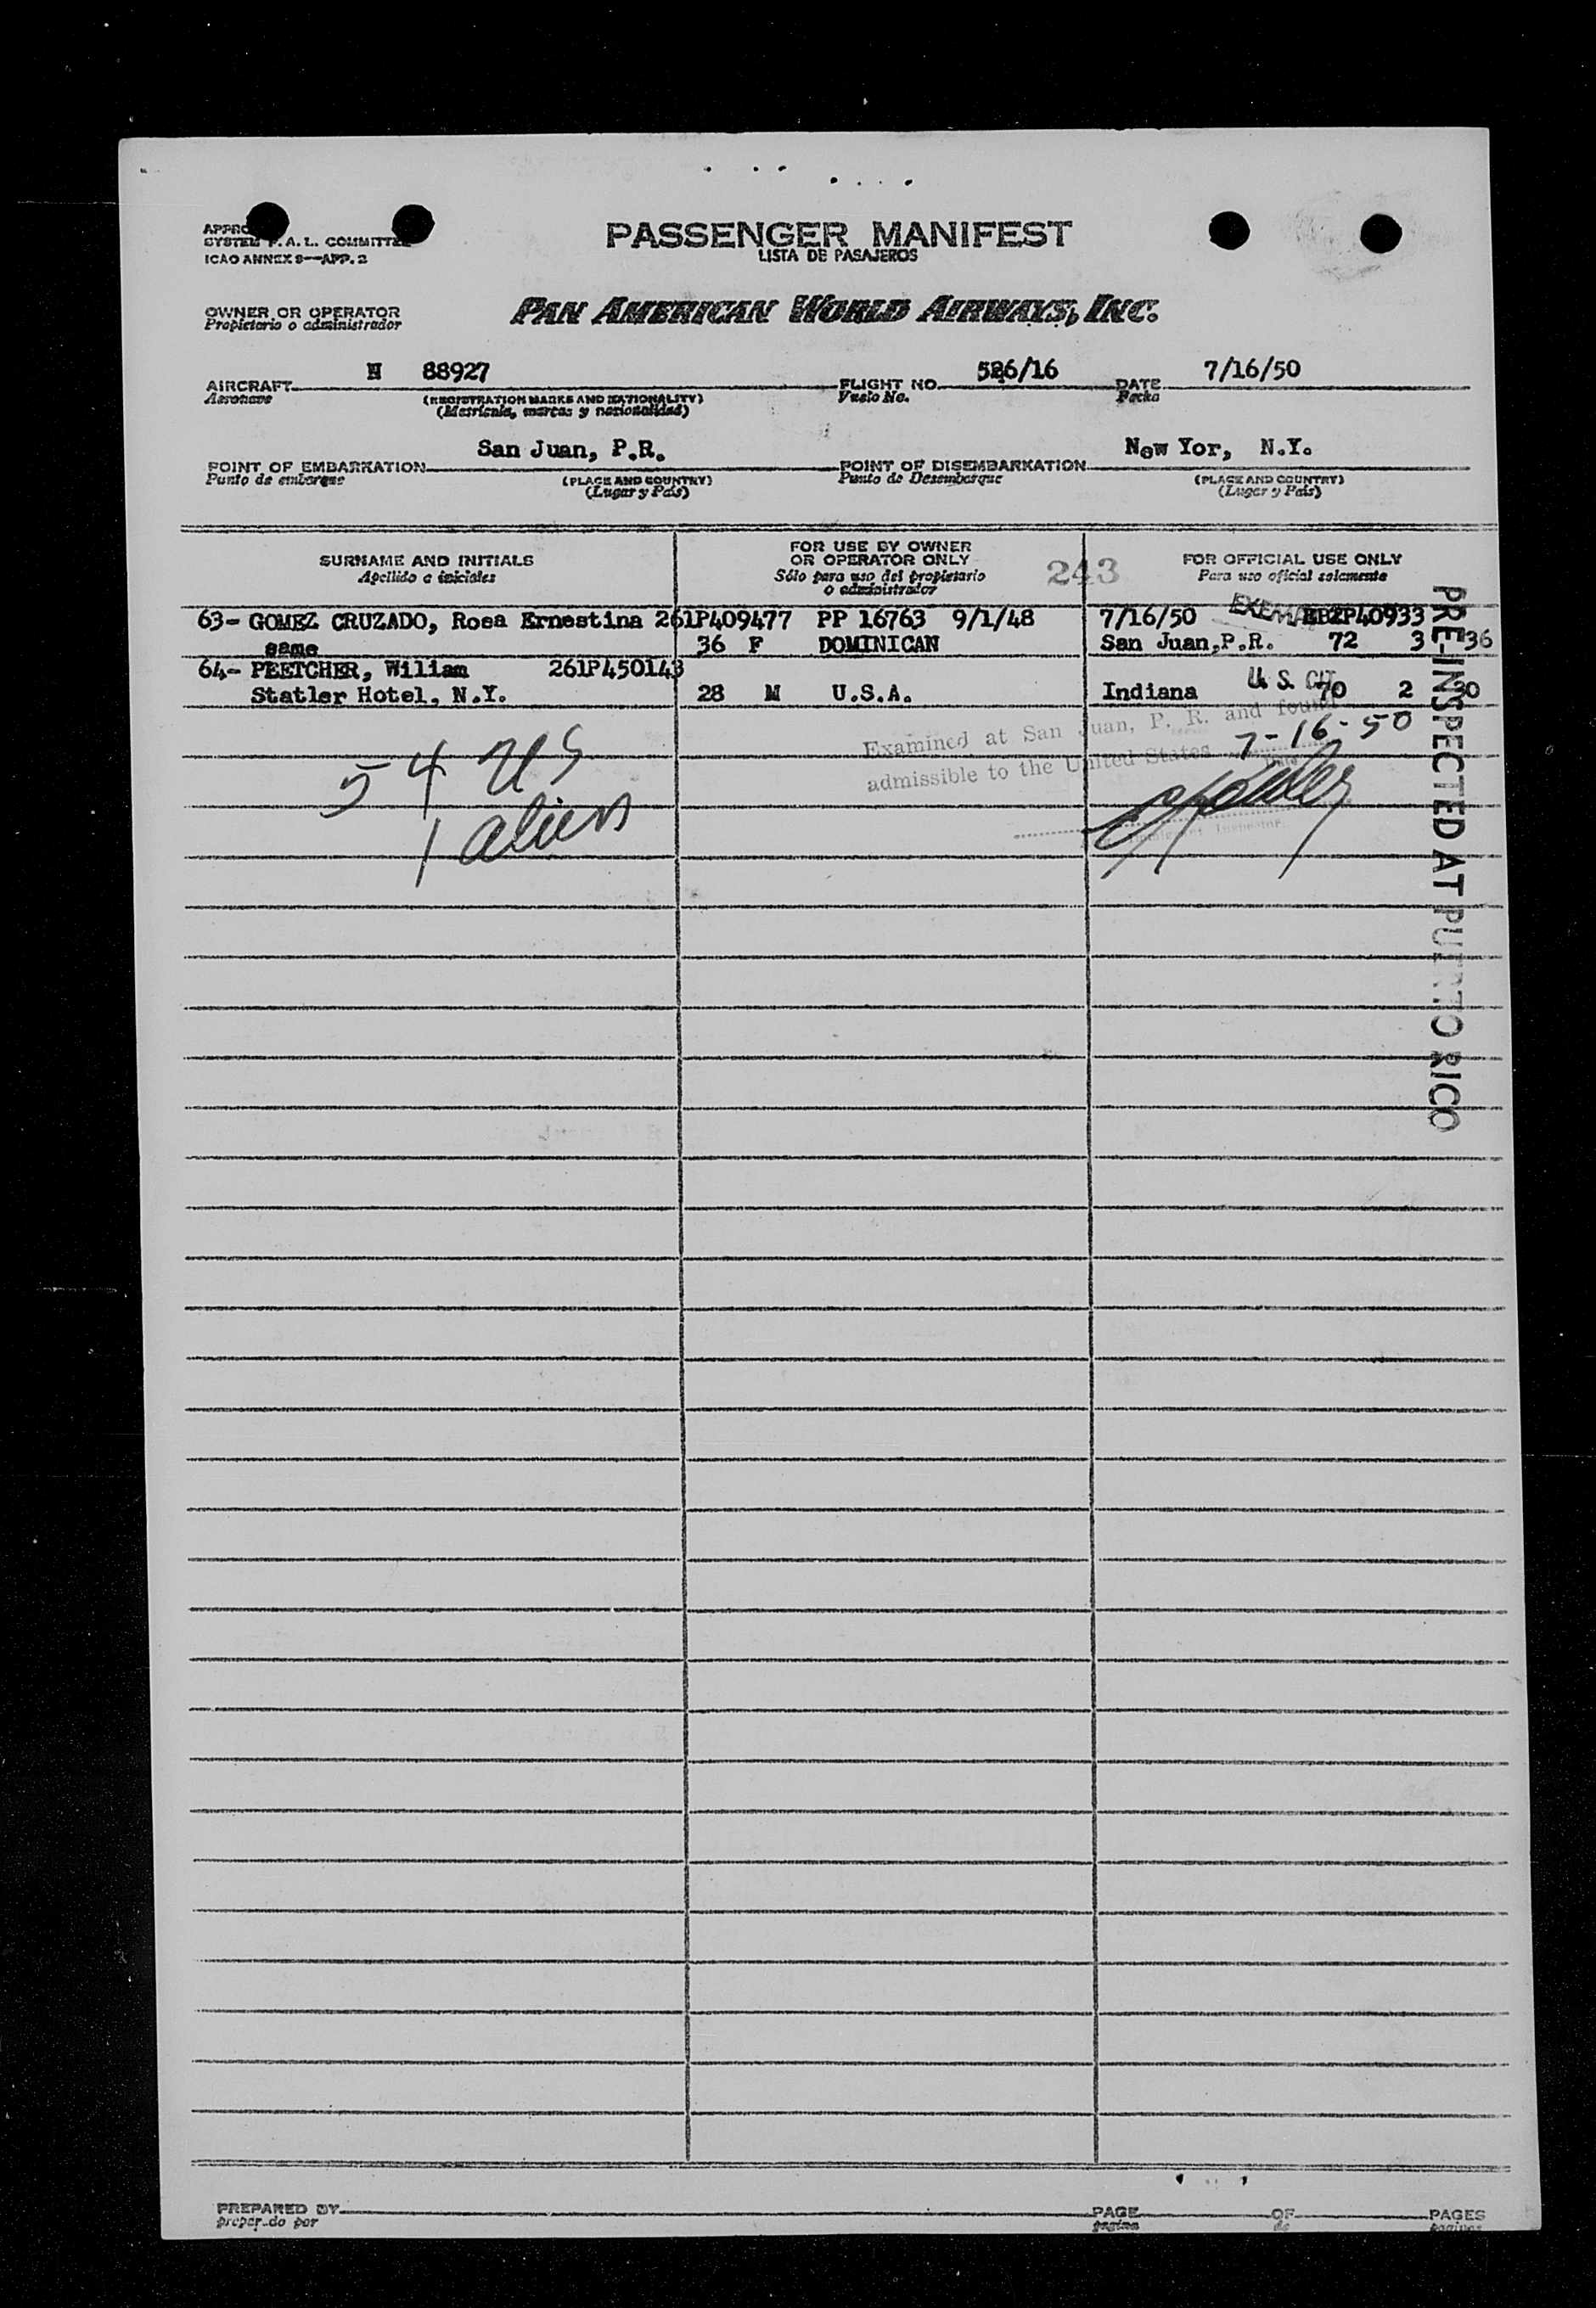 PASSENGER MANIFEST
LISTA DE PASAJEROS
SYSTEM F. A. L. COMMITTEE
ICAO ANNEX 9—APP. 2
OWNER OR OPERATOR
Propietario o administrador
PAN AMERICAN WORLD AIRWAYS, INC.
AIRCRAFT N 88927 FLIGHT NO. 526/16 DATE 7/16/50
Aeronave (REGISTRATION MARKS AND NATIONALITY) Vuelo No. Fecha
(Matricula, marcas y nacionalidad)
POINT OF EMBARKATION San Juan, P.R. POINT OF DISEMBARKATION New Yor, N.Y.
Punto de embarque (PLACE AND COUNTRY) Punto de Desembarque (PLACE AND COUNTRY)
(Lugar y País) (Lugar y País)
SURNAME AND INITIALS
Apellido e iniciales
FOR USE BY OWNER
OR OPERATOR ONLY
Sólo para uso del propietario
o administrador
243
FOR OFFICIAL USE ONLY
Para uso oficial solamente
63- GOMEZ CRUZADO, Rosa Ernestina 261P409477 PP 16763 9/1/48 7/16/50
same 36 F DOMINICAN San Juan,P.R. 72 3 36
64- PEETCHER, Wiliam 261P450143
Statler Hotel, N.Y. 28 M U.S.A. Indiana U. S. CIT 70 2 30
Examined at San Juan, P. R. and found
admissible to the United States 7-16-50
Immigrant Inspector
54 US
1 alien
PRE-INSPECTED AT PUERTO RICO
PREPARED BY PAGE OF PAGES
preparado por pagina de paginas